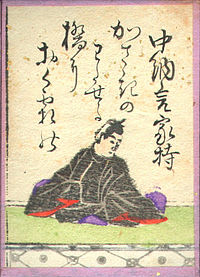 中納言家持
かさゝきの
わたせる
橋に
おく